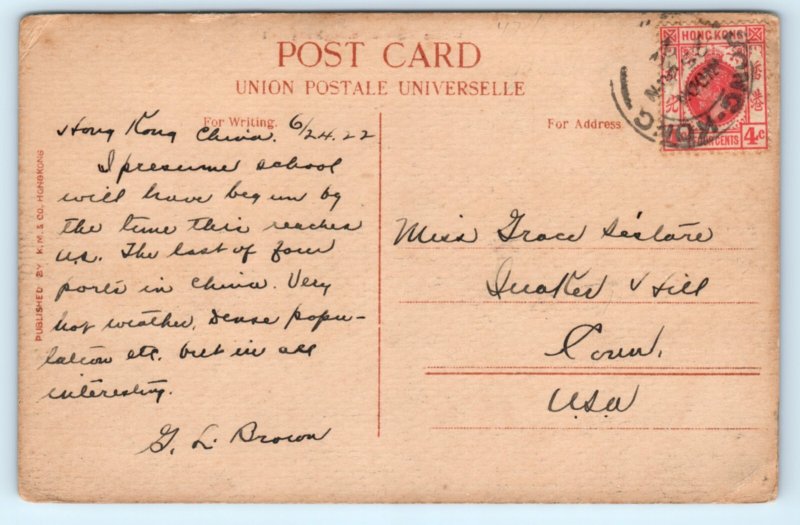 POST CARD
UNION POSTALE UNIVERSELLE
For Writing.
Hong Kong China. 6/24.22
I presume school
will have begun by
the time this reaches
us. The last of four
ports in China. Very
hot weather, dense popu-
lation etc. but in all
interesting.
G. L. Brown
PUBLISHED BY K.M. & CO. HONGKONG
For Address
HONG KONG
FOUR CENTS 4c
HONG-KONG
Miss Grace
Quaker Hill
Conn.
U.S.A